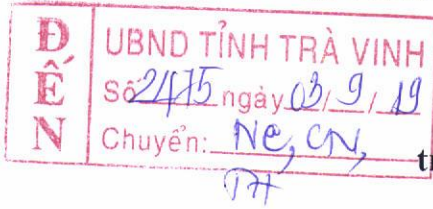 ĐẾN
UBND TỈNH TRÀ VINH
Số 2475 ngày 03/9/19
Chuyển: NC, CN,
TH